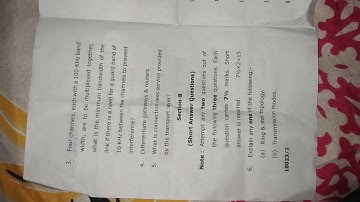 3. Four channels, each with a 100-KHz band
width, are to be multiplexed together,
what is the minimum bandwidth of the
link if there is a need for a guard band of
10 kHz between the channels to prevent
interference?
4. Differentiate gateways & routers.
5. What is connection less service provided
by the transport layer?
Section B
(Short Answer Questions)
Note : Attempt any two questions out of
the following three questions. Each
question carries 7½ marks. Short
answer is required. 7½×2=15
6. Explain any one of the following :
(a) Ring & star topology.
(b) Transmission modes.
18023/2